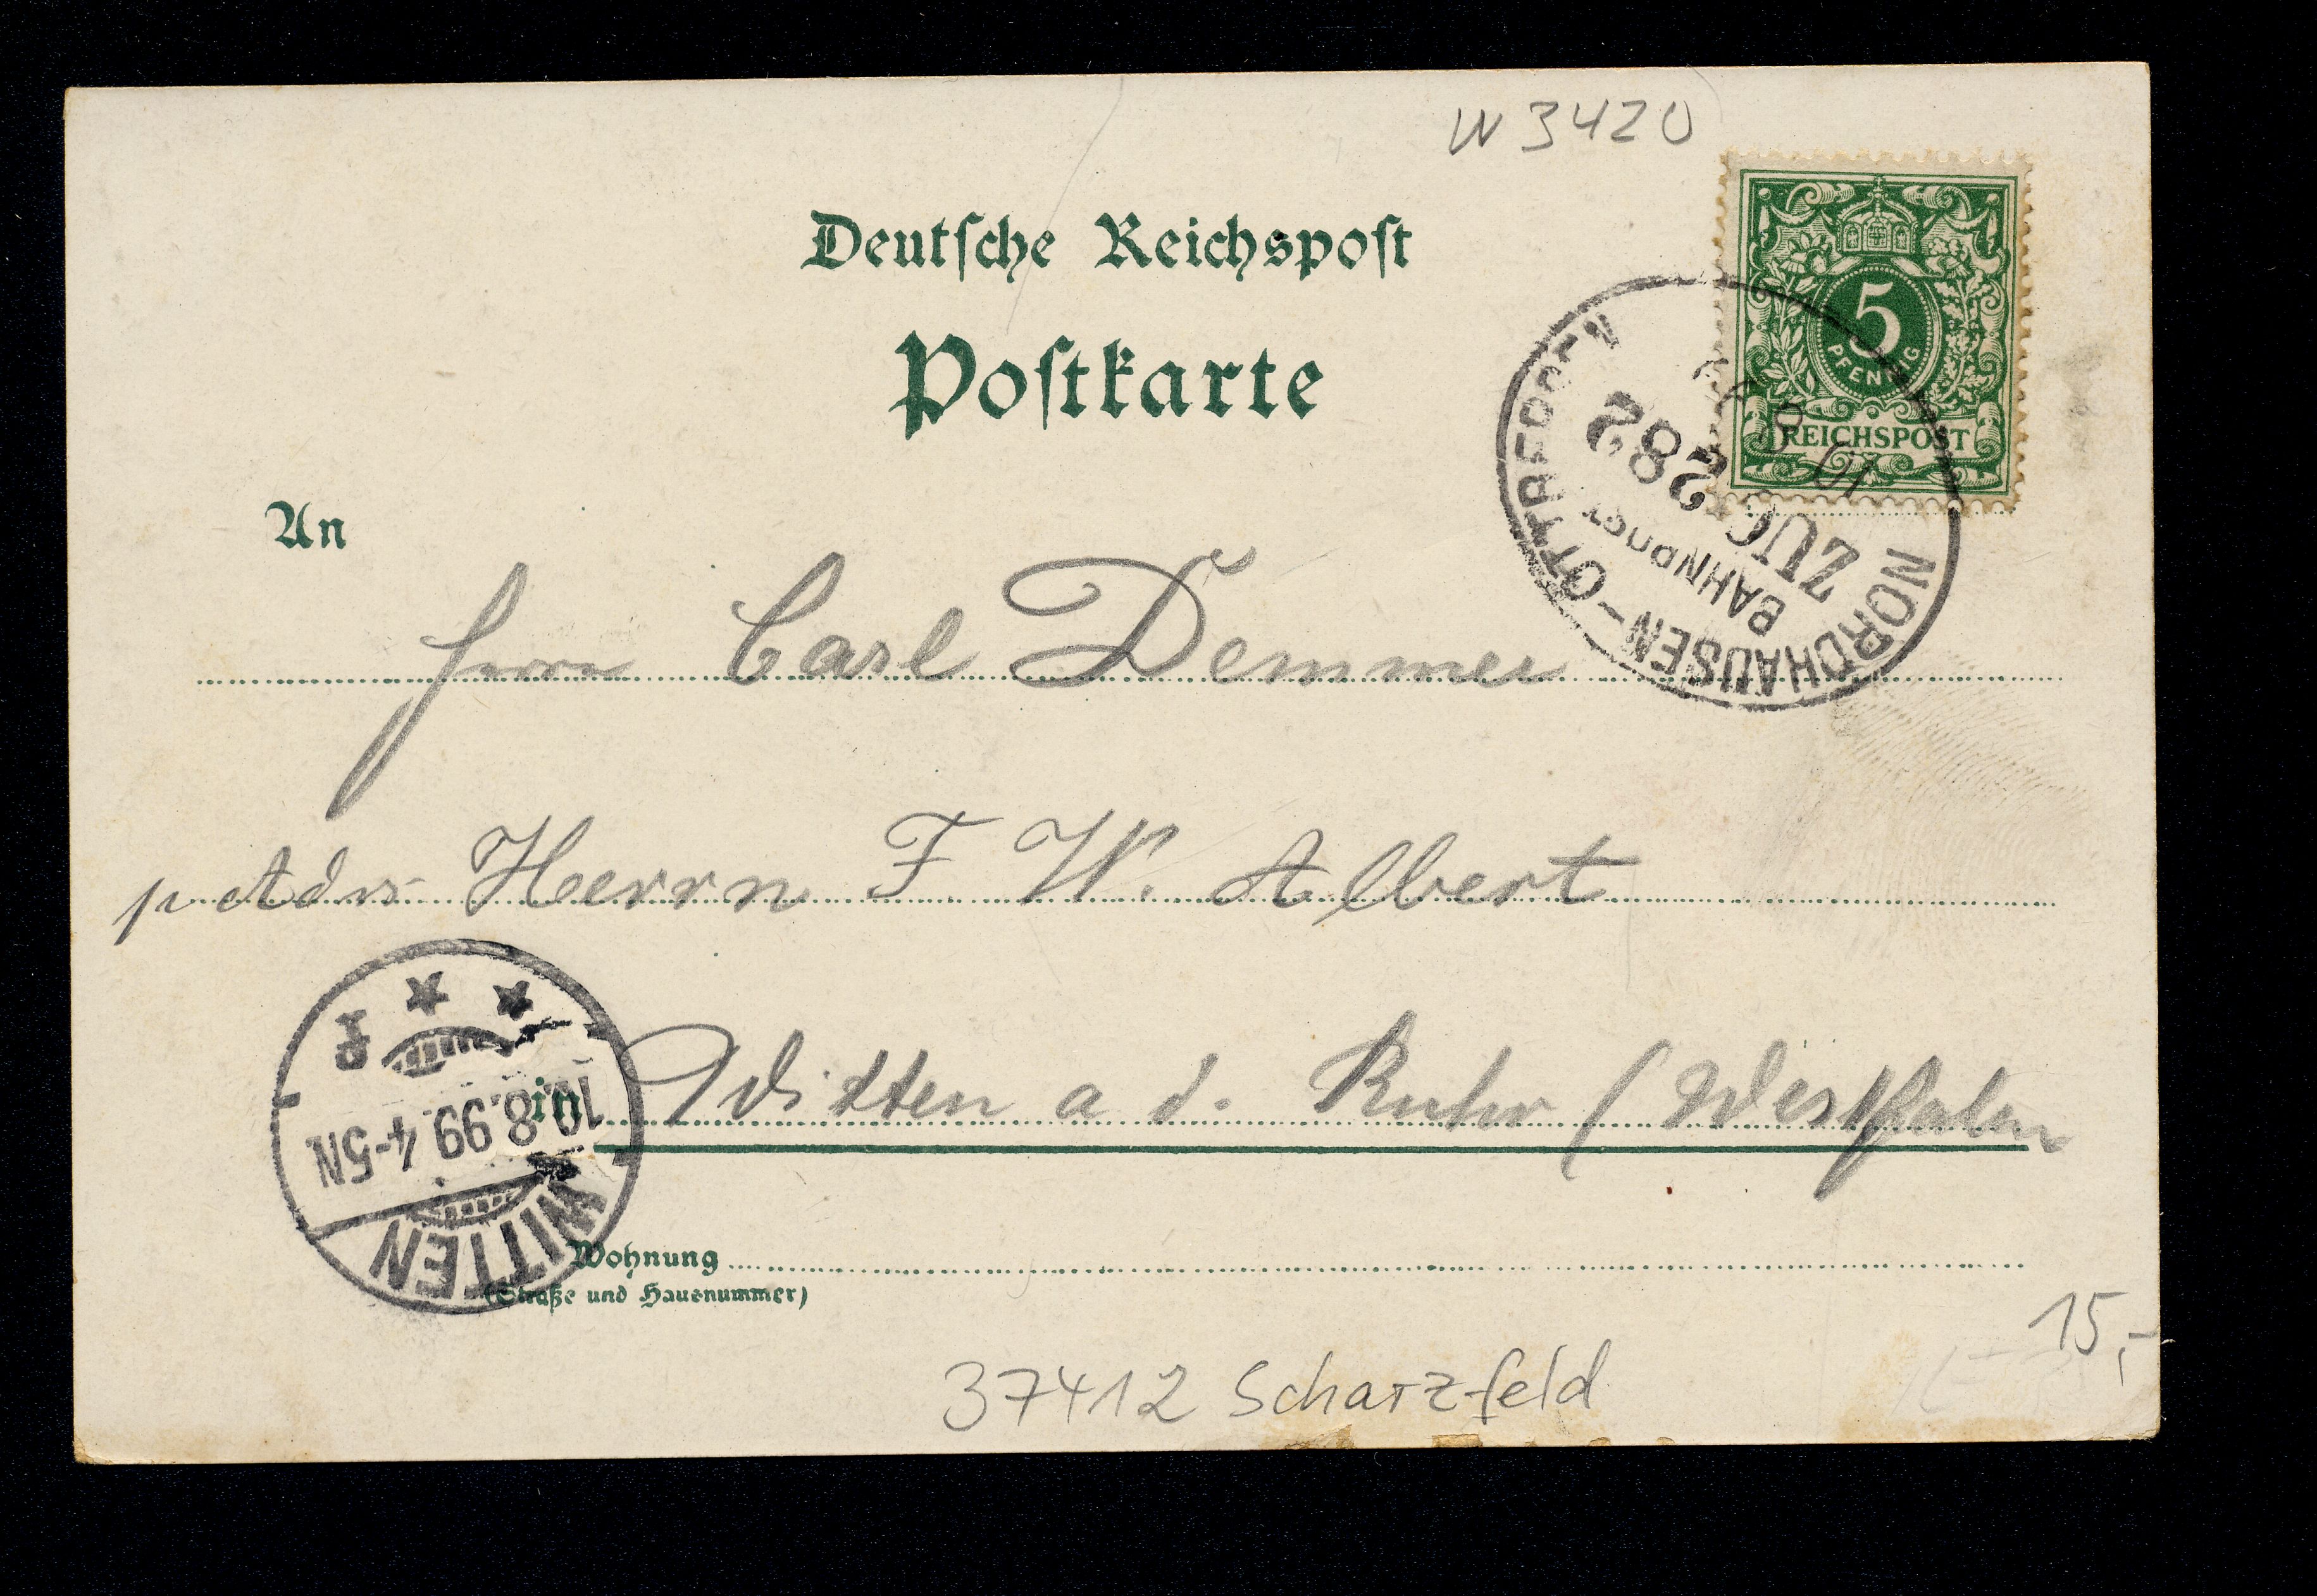 W 3420
Deutsche Reichspost
Postkarte
5
PFENNIG
REICHSPOST
NORDHAUSEN-OTTBERGEN
BAHNPOST
ZUG 282
10 8
An
Herrn Carl Demmer
p Adr Herrn F. W. Albert
in Witten a d. Ruhr (Westfalen
WITTEN
10.8.99. 4-5N
Wohnung
(Straße und Hausnummer)
15,-
37412 Scharzfeld